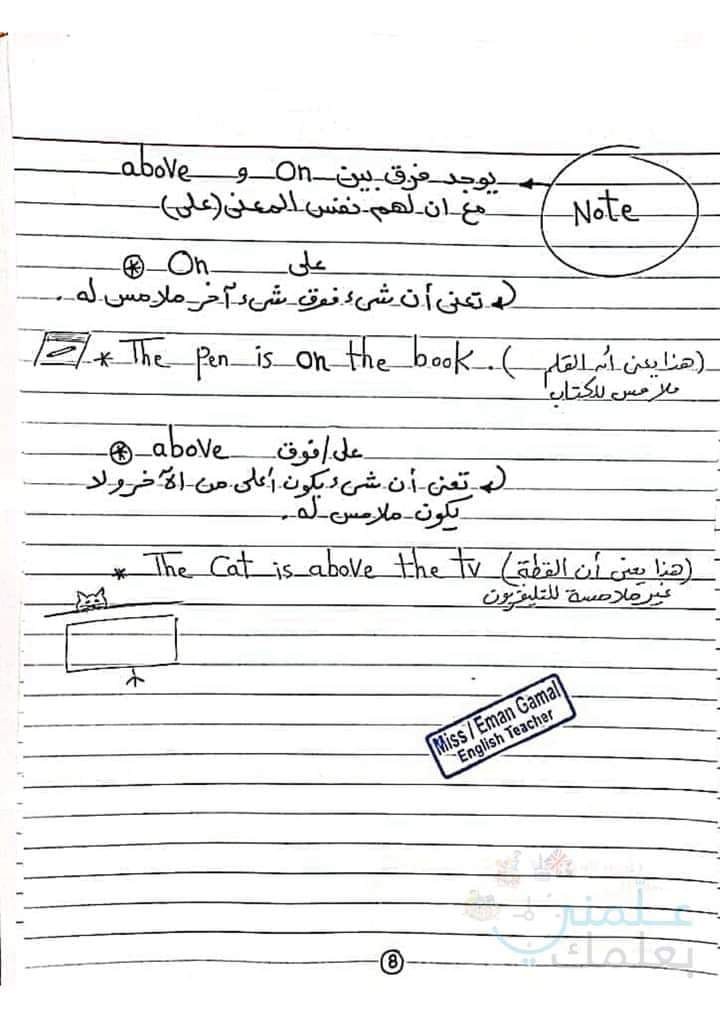 Note
يوجد فرق بين On و above
مع ان لهم نفس المعنى (على)
* On على
تعنى أن شىء فوق شىء آخر ملامس له.
* The Pen is on the book. (هذا يعنى أن القلم
ملامس للكتاب
* above على/فوق
تعنى أن شىء يكون أعلى من الآخر ولا
يكون ملامس له.
* The Cat is above the tv (هذا يعنى أن القطة)
غير ملامسة للتليفزيون
Miss / Eman Gamal
English Teacher
علمني
بعلمك
8